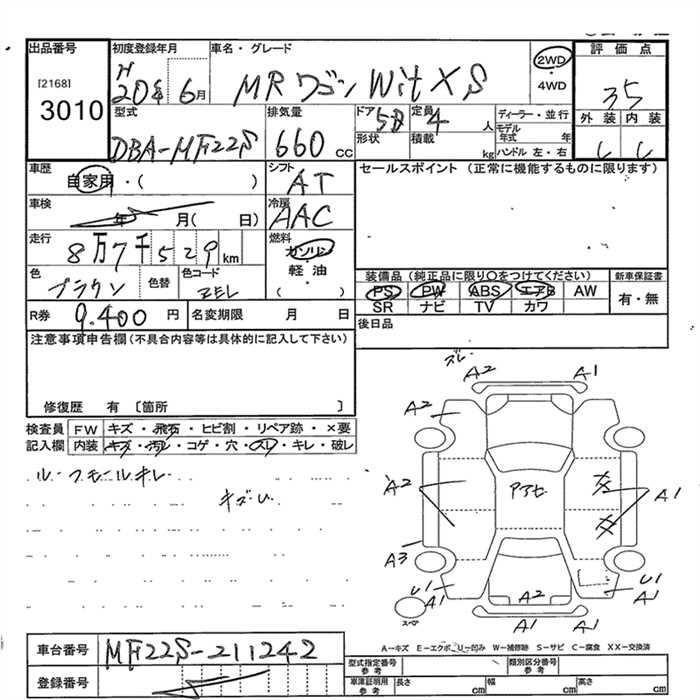 出品番号 初度登録年月 車名・グレード 2WD 評価点
[2168] H20年 6月 MRワゴン Wit XS 4WD 3.5
3010 型式 排気量 ドア 5D 定員 4人 ディーラー・並行 外装 内装
DBA-MF22S 660cc 形状 積載 kg モデル年式 年 C C
ハンドル 左・右
車歴 自家用・( ) シフト AT セールスポイント (正常に機能するものに限ります)
車検 年 月( 日) 冷房 AAC
走行 8万7千529km 燃料 ガソリン
軽・油
( )
色 ブラウン 色替 色コード ZEL 装備品(純正品に限り○をつけてください) 新車保証書
PS PW ABS エアB AW 有・無
SR ナビ TV カワ
R券 9,400円 名変期限 月 日 後日品
注意事項申告欄(不具合内容等は具体的に記入して下さい)
修復歴 有 〔箇所 〕
検査員 FW キズ・飛石・ヒビ割・リペア跡・×要
記入欄 内装 キズ・汚レ・コゲ・穴・スレ・キレ・破レ
ルーフモールキレ
キズU
ズレ
A2 A1
A2 A1
A2 アアセ A1
A3
U1 U1
A1 A2 A1
スペア A1 A1
A-キズ E-エクボ U-凹み W-補修跡 S-サビ C-腐食 XX-交換済
車台番号 MF22S-211242
登録番号
型式指定番号 参考 類別区分番号 参考
車庫証明用 参考 長さ cm 幅 cm 高さ cm